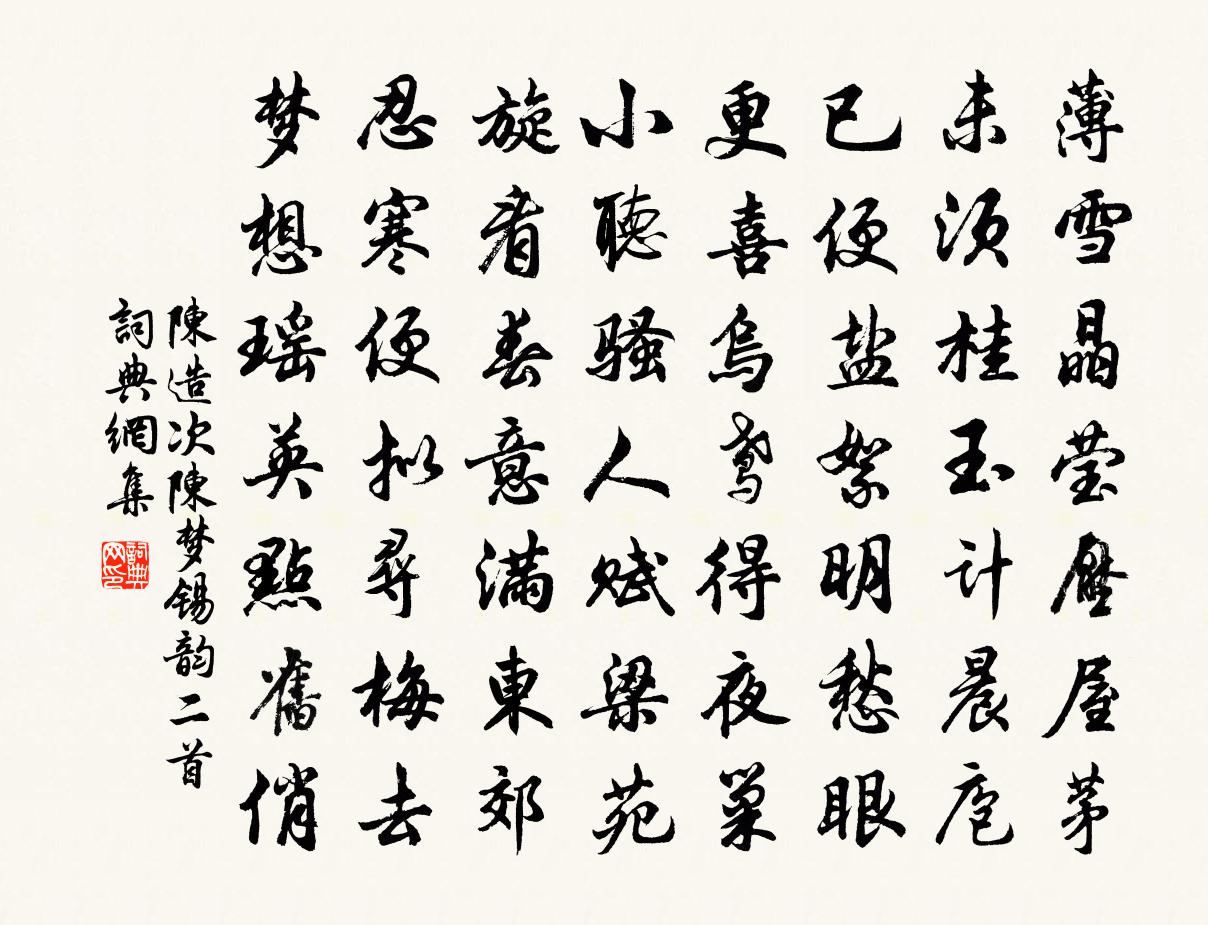 薄雪晶莹壓屋茅
未须桂玉计晨庖
已便盐絮明愁眼
更喜烏鸢得夜巢
小聽骚人赋梁苑
旋看春意满東郊
忍寒便拟尋梅去
梦想瑶英點舊俏
陳造次陳梦锡韵二首
詞典網集
詞典网印